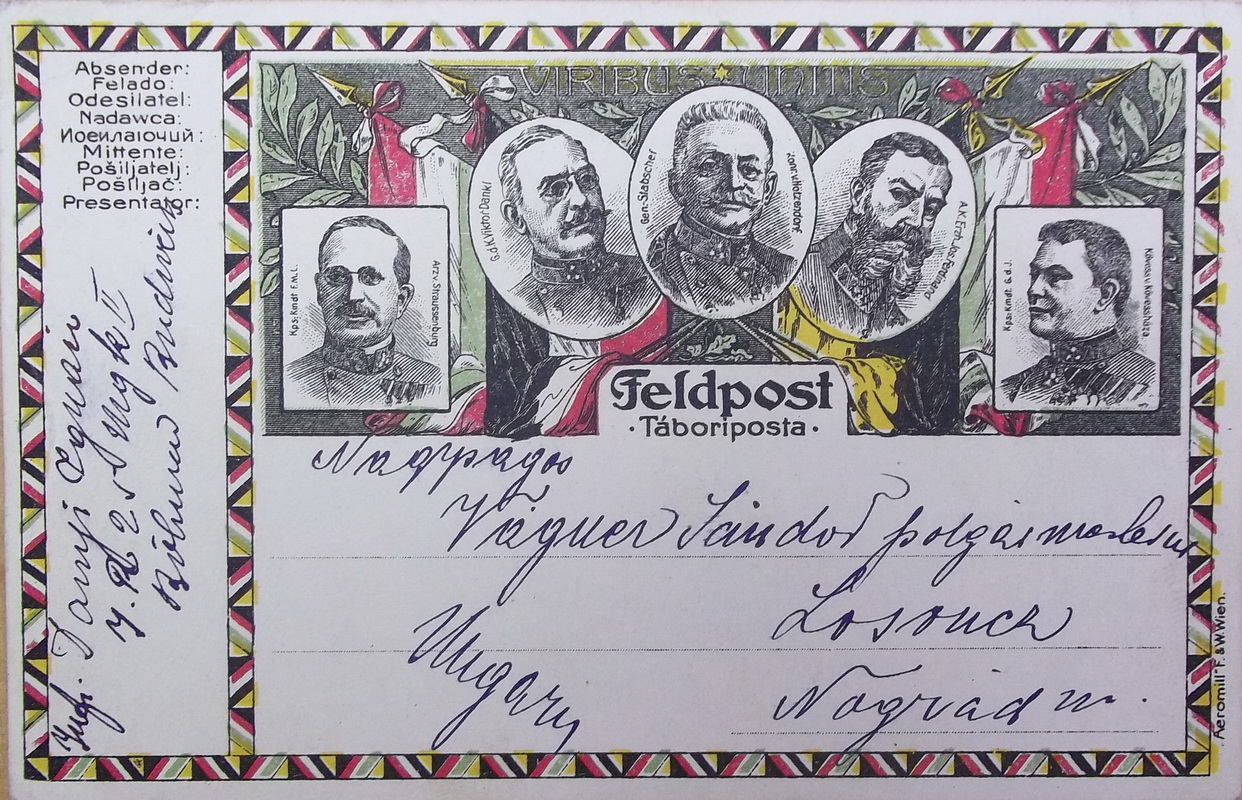 Absender:
Felado:
Odesilatel:
Nadawca:
Иосилаючий:
Mittente:
Pošiljatelj:
Pošiljač:
Presentator:
VIRIBUS UNITIS
Kps. Kmdt F.M.L.
Arz v. Straussenburg
G.d.K. Viktor Dankl
Gen. Stabschef
Konr. v. Hötzendorf
A.K. Erzh. Jos. Ferdinand
Kps. Kmdt. G.d.J.
Kövess v. Kövessháza
Feldpost
·Táboriposta·
Nagyságos
Vágner Sándor polgármester
Losoncz
Ungarn
Nógrád m.
25
Böhmen Budweis
"Aeromill" F. & W. Wien.